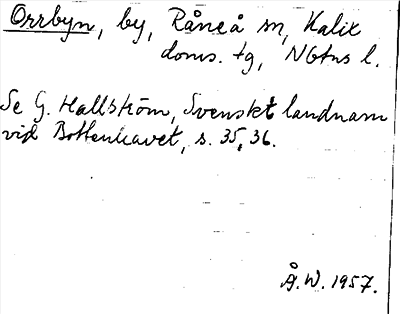 Orrbyn, by, Råneå sn, Kalix
doms. tg, Nbtns l.
Se G. Hallström, Svenskt landnam
vid Bottenhavet, s. 35, 36.
Å. W. 1957.